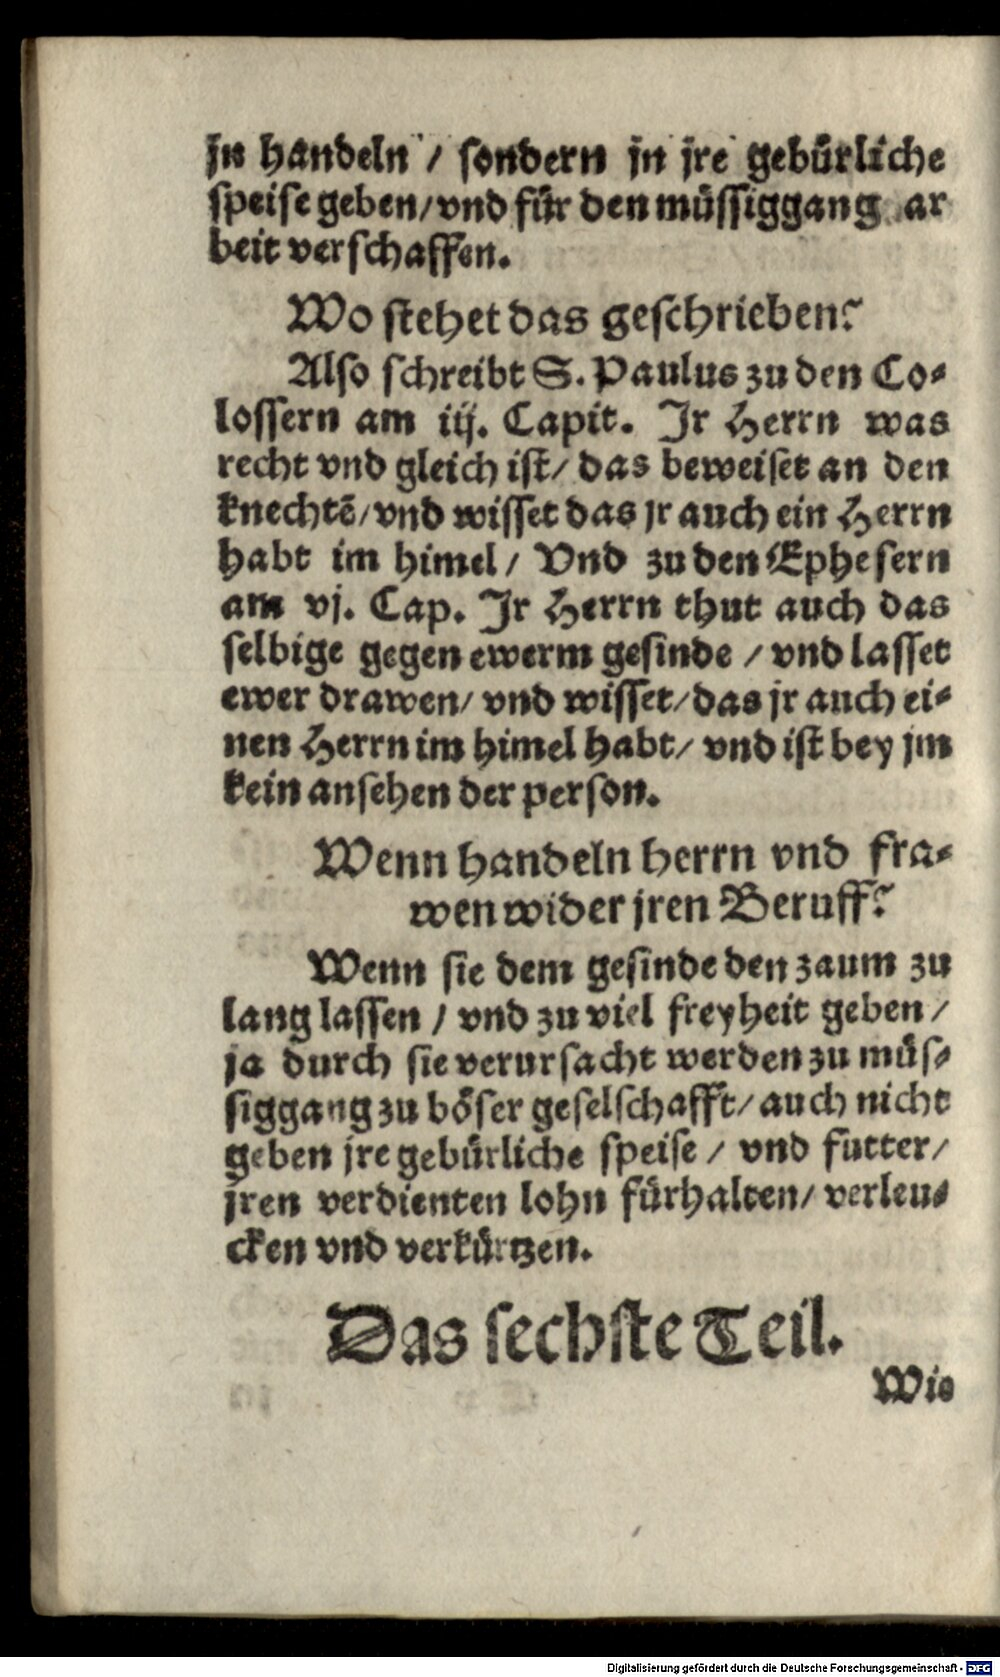 jn handeln / sondern jn jre gebürliche
speise geben/vnd für den müssiggang ar
beit verschaffen.
Wo stehet das geschrieben?
Also schreibt S. Paulus zu den Co-
lossern am iij. Capit. Jr Herrn was
recht vnd gleich ist/ das beweiset an den
knechtē/vnd wisset das jr auch ein Herrn
habt im himel/ Vnd zu den Ephesern
am vj. Cap. Jr Herrn thut auch das
selbige gegen ewerm gesinde / vnd lasset
ewer drawen/ vnd wisset/das jr auch ei-
nen Herrn im himel habt/ vnd ist bey jm
kein ansehen der person.
Wenn handeln herrn vnd fra-
wen wider jren Beruff?
Wenn sie dem gesinde den zaum zu
lang lassen / vnd zu viel freyheit geben/
ja durch sie verursacht werden zu müs-
siggang zu böser geselschafft/ auch nicht
geben jre gebürliche speise / vnd futter/
jren verdienten lohn fürhalten/ verleu-
cken vnd verkürtzen.
Das sechste Teil.
Wie
Digitalisierung gefördert durch die Deutsche Forschungsgemeinschaft - DFG